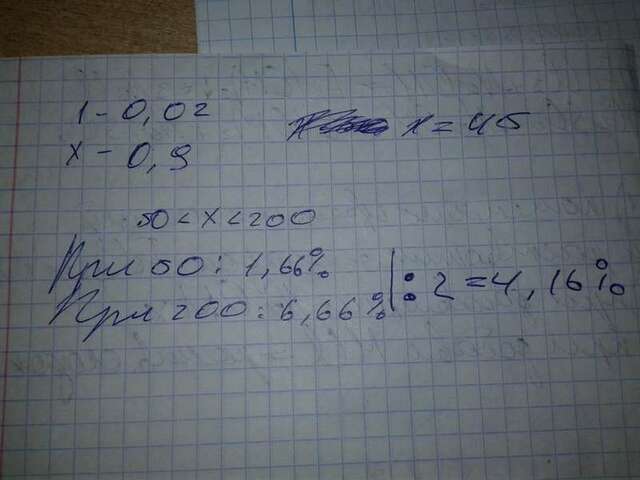 1 - 0,02
x = 45
x - 0,9
50 < x < 200
При 50: 1,66%
При 200: 6,66%
: 2 = 4,16%